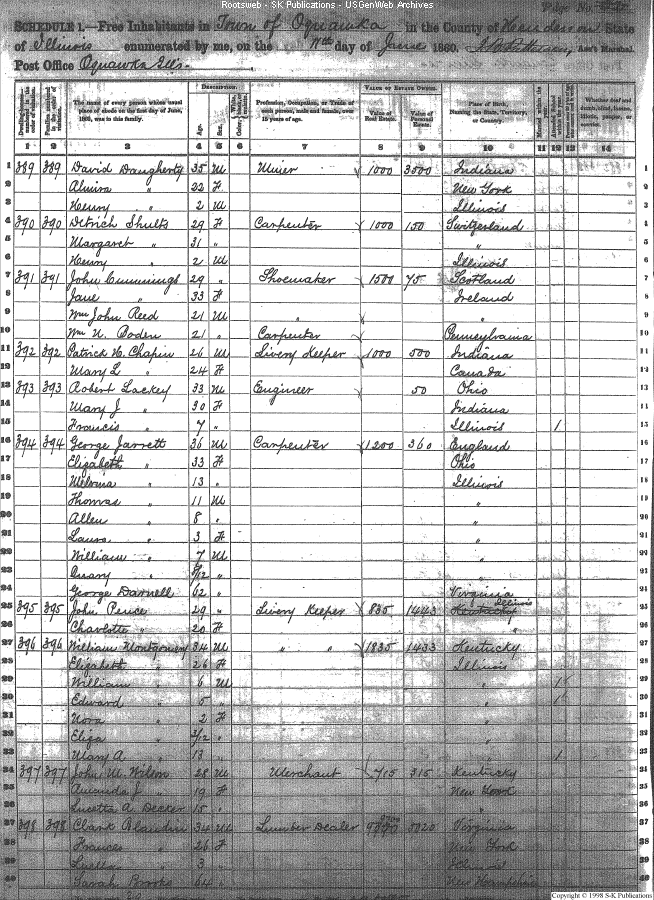 Rootsweb - SK Publications - USGenWeb Archives
Page No.
SCHEDULE 1.—Free Inhabitants in Town of Oquawka in the County of Henderson State
of Illinois enumerated by me, on the day of June 1860. Ass't Marshal.
Post Office Oquawka Ills.
DESCRIPTION. VALUE OF ESTATE OWNED.
The name of every person whose usual place of abode on the first day of June, 1860, was in this family. Age. Sex. Profession, Occupation, or Trade of each person, male and female, over 15 years of age. Value of Real Estate. Value of Personal Estate. Place of Birth, Naming the State, Territory, or Country.
1 2 3 4 5 6 7 8 9 10 11 12 13 14
1 389 389 David Daugherty 35 M Miner 1000 3000 Indiana 1
2 Almira " 22 F New York 2
3 Henry " 2 M Illinois 3
4 390 390 Detrich Shults 29 F Carpenter 1000 150 Switzerland 4
5 Margaret " 31 " " 5
6 Henry " 2 M Illinois 6
7 391 391 John Cummings 29 " Shoemaker 1500 75 Scotland 7
8 Jane " 33 F Ireland 8
9 Wm John Reed 21 M " " 9
10 Wm N. Boden 21 " Carpenter Pennsylvania
11 392 392 Patrick H. Chapin 26 M Livery Keeper 1000 500 Indiana 11
12 Mary L " 24 F Canada
13 393 393 Robert Lackey 33 M Engineer 50 Ohio
14 Mary J " 30 F Indiana
15 Francis " 7 " Illinois 1
16 394 394 George Jarrett 36 M Carpenter 1200 360 England
17 Elizabeth " 33 F Ohio
18 13 " Illinois
19 Thomas " 11 M "
20 Allen " 8 " "
21 Laura " 3 F "
22 William " 7 M "
23 " /12 " "
24 George Darnell 62 " Virginia
25 395 395 John Pence 29 " Livery Keeper 835 1443 Kentucky Illinois
26 Charlotte " 20 F "
27 396 396 William Montgomery 34 M " " 1835 1433 Kentucky
28 Elizabeth " 26 F Illinois
29 William " 6 M " 1
30 Edward " 5 " " 1
31 Nora " 2 F "
32 Eliza " /12 " "
33 Mary A. " 13 " " 1
34 397 397 John M. Wilson 28 M Merchant 715 315 Kentucky
35 Amanda J " 19 F New York
36 Lucetta A Decker 15 " "
37 398 398 Clark Blandin 34 M Lumber Dealer 5020 Virginia
38 Frances " 26 F New York
39 Luella " 3 " Illinois
40 Sarah Brooks 64 " New Hampshire
Copyright © 1998 S-K Publications